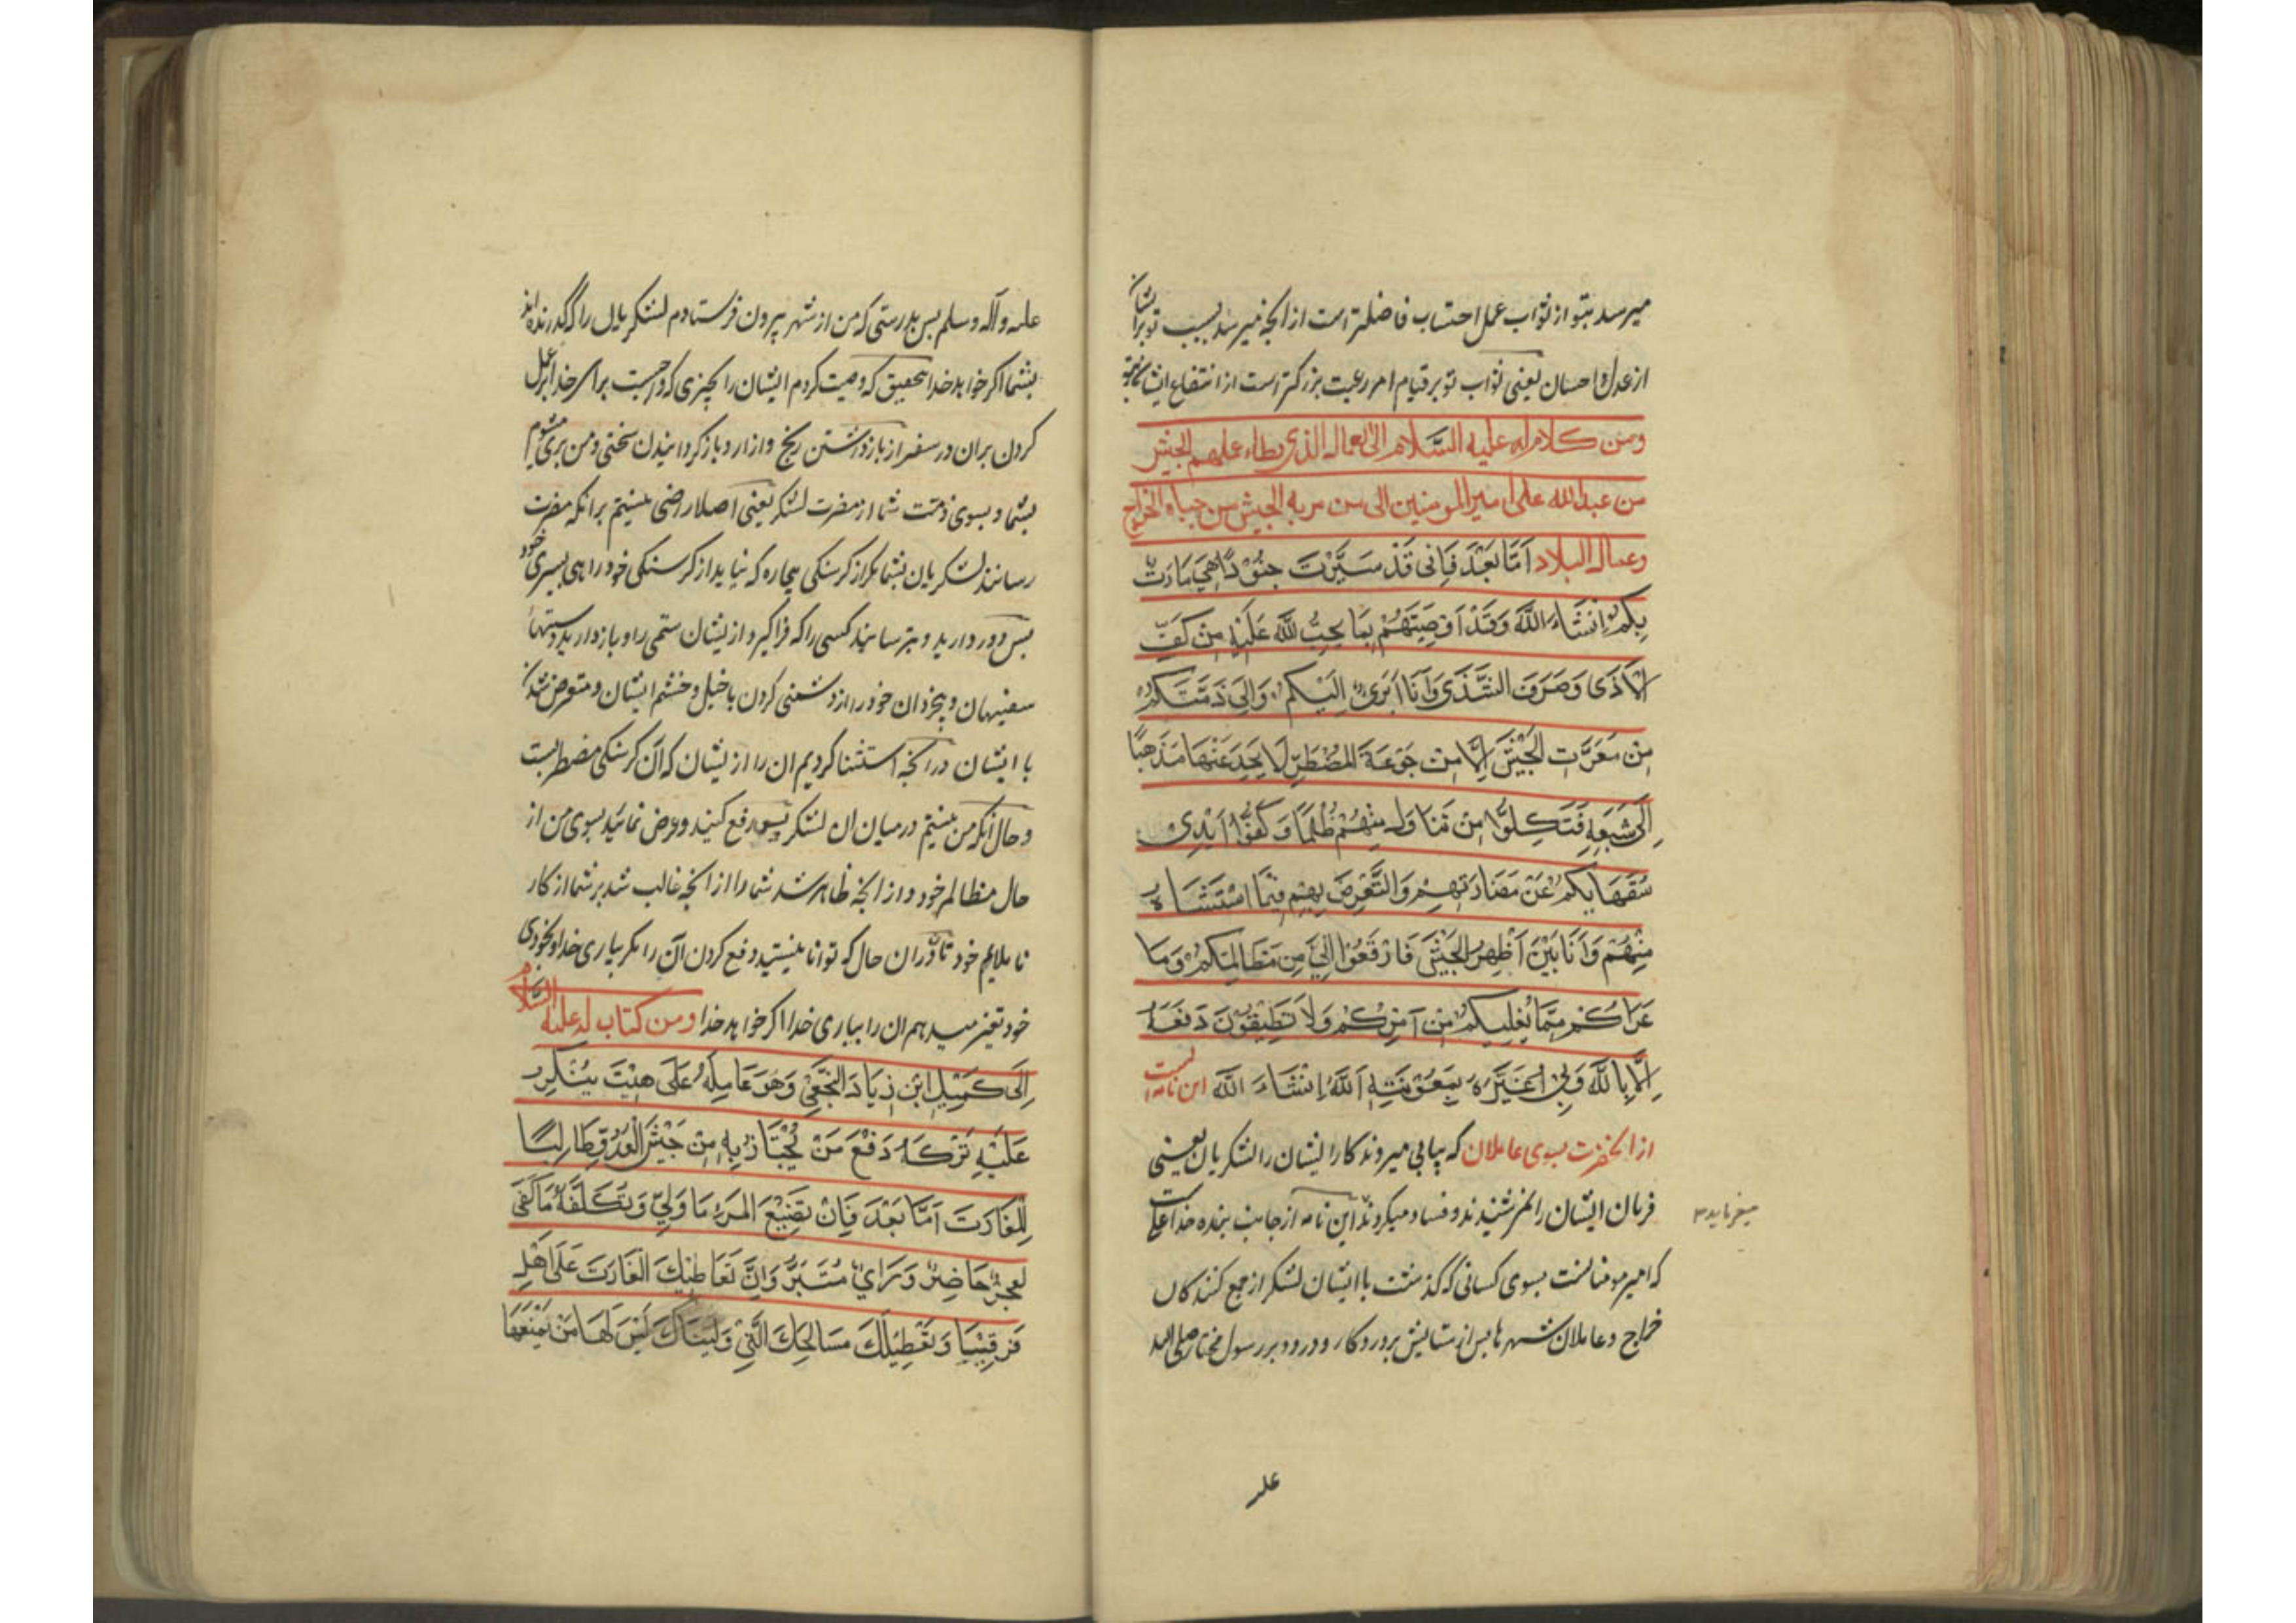 میرسد بتو از ثواب عمل احتساب فاضلتر است از انچه میرسد بسبب تو برایشان
از عدل و احسان یعنی ثواب تو بر قیام امر رعیت بزرکتر است از انتفاع ایشان
ومن كلام له عليه السلام الى العمال الذي يطاء عليهم الجيش
من عبد الله على امير المومنين الى من مر به الجيش من جباه الخراج
وعمال البلاد اَمَّا بَعْدَ فَاِنى قَدْ سَيَّرْتَ جنُوْدًا هِيَ مَارَت
بِكُمْ اِنْشَاءَ اللَّهَ وَقَدْ اَوصَيتَهُمْ بِمَا يحِبُّ للَّهَ عَلَيْهِ مِنْ كَفِّ
الاَذَى وَصَرَفَ الشَّذَى وَاَنَا اَبَرىُ اِلَيْكم وَاِلىَ ذَمَّتَكم
مِنْ مَعَرَّتِ الجَيْشَ اِلَّا مِنْ جَوْعَةَ المُضْطَرِّ لَا يَجِدَ عَنْهَا مَذْهبًا
اِلَى شَبَعِهِ فَتَكِلوُّا مِنْ تَنَا وَلَ مِنْهُمْ ظُلْمًا وَكُفوُّا اَيْدِى
سُفَهَا يكم عَنْ مَضَادَتهِمْ وَالتَّعَرضَ بِهِمْ فِيمَا اسْتَثنَاه
مِنْهُمْ وَاَنَا بَيْنَ اَظْهرِ الجَيْشَ فَارْفَعُوْا اِلَيَّ مِنَ مَظَالِمَكمْ وَما
عَرَاكُمْ مِمَّا يُغلِبكمْ مِنْ اَمْرِكُمْ وَلاَ تَطِيقُوْنَ دَفعَهُ
اِلَّا بِاللَّهِ وَبِى اُغيَّرَهُ بِمَعُوْنَتِهِ اَللَّهُ اِنْشَاءَ اللَّه این نامه ایست
از انحضرت بسوی عاملان که پیاپی میروند کار ایشان را لشکریان یعنی
فرمان ایشان را نمی شنیدند و فساد میکردند این نامه از جانب بنده خدا علی است
میفرماید
که امیر مومنانست بسوی کسانی که گذشت با ایشان لشکر از جمع کنندکان
خراج و عاملان شهرها پس از ستایش پروردکار و درود بر رسول مختار صلی الله
علیه
علیه وآله وسلم پس بدرستی که من از شهر بیرون فرستادم لشکریان را که گذرنده اند
بشما اکر خواهد خدا بتحقیق که وصیت کردم ایشان را بچیزی که واجبست برای خدا عمل
کردن بران در سفر از بازداشتن رنج و ازار و بازکردانیدن سختی و من بری میشوم
بشما و بسوی ذمت شما از مضرت لشکر یعنی اصلا راضی نیستم برانکه مضرت
رسانند لشکریان بشما مکر از کرسنکی بیچاره که نیابد از کرسنکی خود راهی بسیری خود
پس دور دارید و بترسانید کسی را که فراکیرد از ایشان ستمی را و بازدارید دستهاء
سفیهان و بیخردان خود را از دشمنی کردن با خیل و خشم ایشان و متعرض شدن
با ایشان در انچه استثنا کردیم ان را از ایشان که آن کرسنکی مضطریست
و حال آنکه من نیستم در میان ان لشکر پس رفع کنید و عرض نمائید بسوی من از
حال مظالم خود و از انچه ظاهر شد شما را از انچه غالب شد بر شما از کار
ناملایم خود تا در ان حال که توانا نیستید دفع کردن آن را مکر بیاری خدا و بخودی
خود تغیر میدهم ان را بیاری خدا اکر خواهد خدا ومن كتاب له عليه السلام
اِلَى كُمَيْلِ ابْنِ زِيَادَ النَّخَعِي وَهُوَ عَامِلهُ عَلَى هِيْتَ يُنْكِر
عَلَيْهِ تَرْكَهُ دَفْعَ مَنْ يُجْتَازُ بِهِ مِنْ جَيْشَ الْعَدُوِّ طَالِبًا
لِلْغَارَتَ اَمَّا بَعْدَ فَاِنْ تَضْيِعَ المَرءِ مَا وَلِيَ وَتَكَلَّفَهُ مَا كَفَى
لَعجزُ حَاضِرُ وَرَاي مُتَبَرُّ وَاِنَّ تَعَاطِيْكَ الْغَارَتَ عَلَى اَهْلِ
قَرقِيْسِيَا وَتَعْطِيْلَكَ مَسَالِحَكَ الَّتِي وَلَّيْنَاكَ لَيْسَ لَهَا مَنْ يَمْنَعهَا